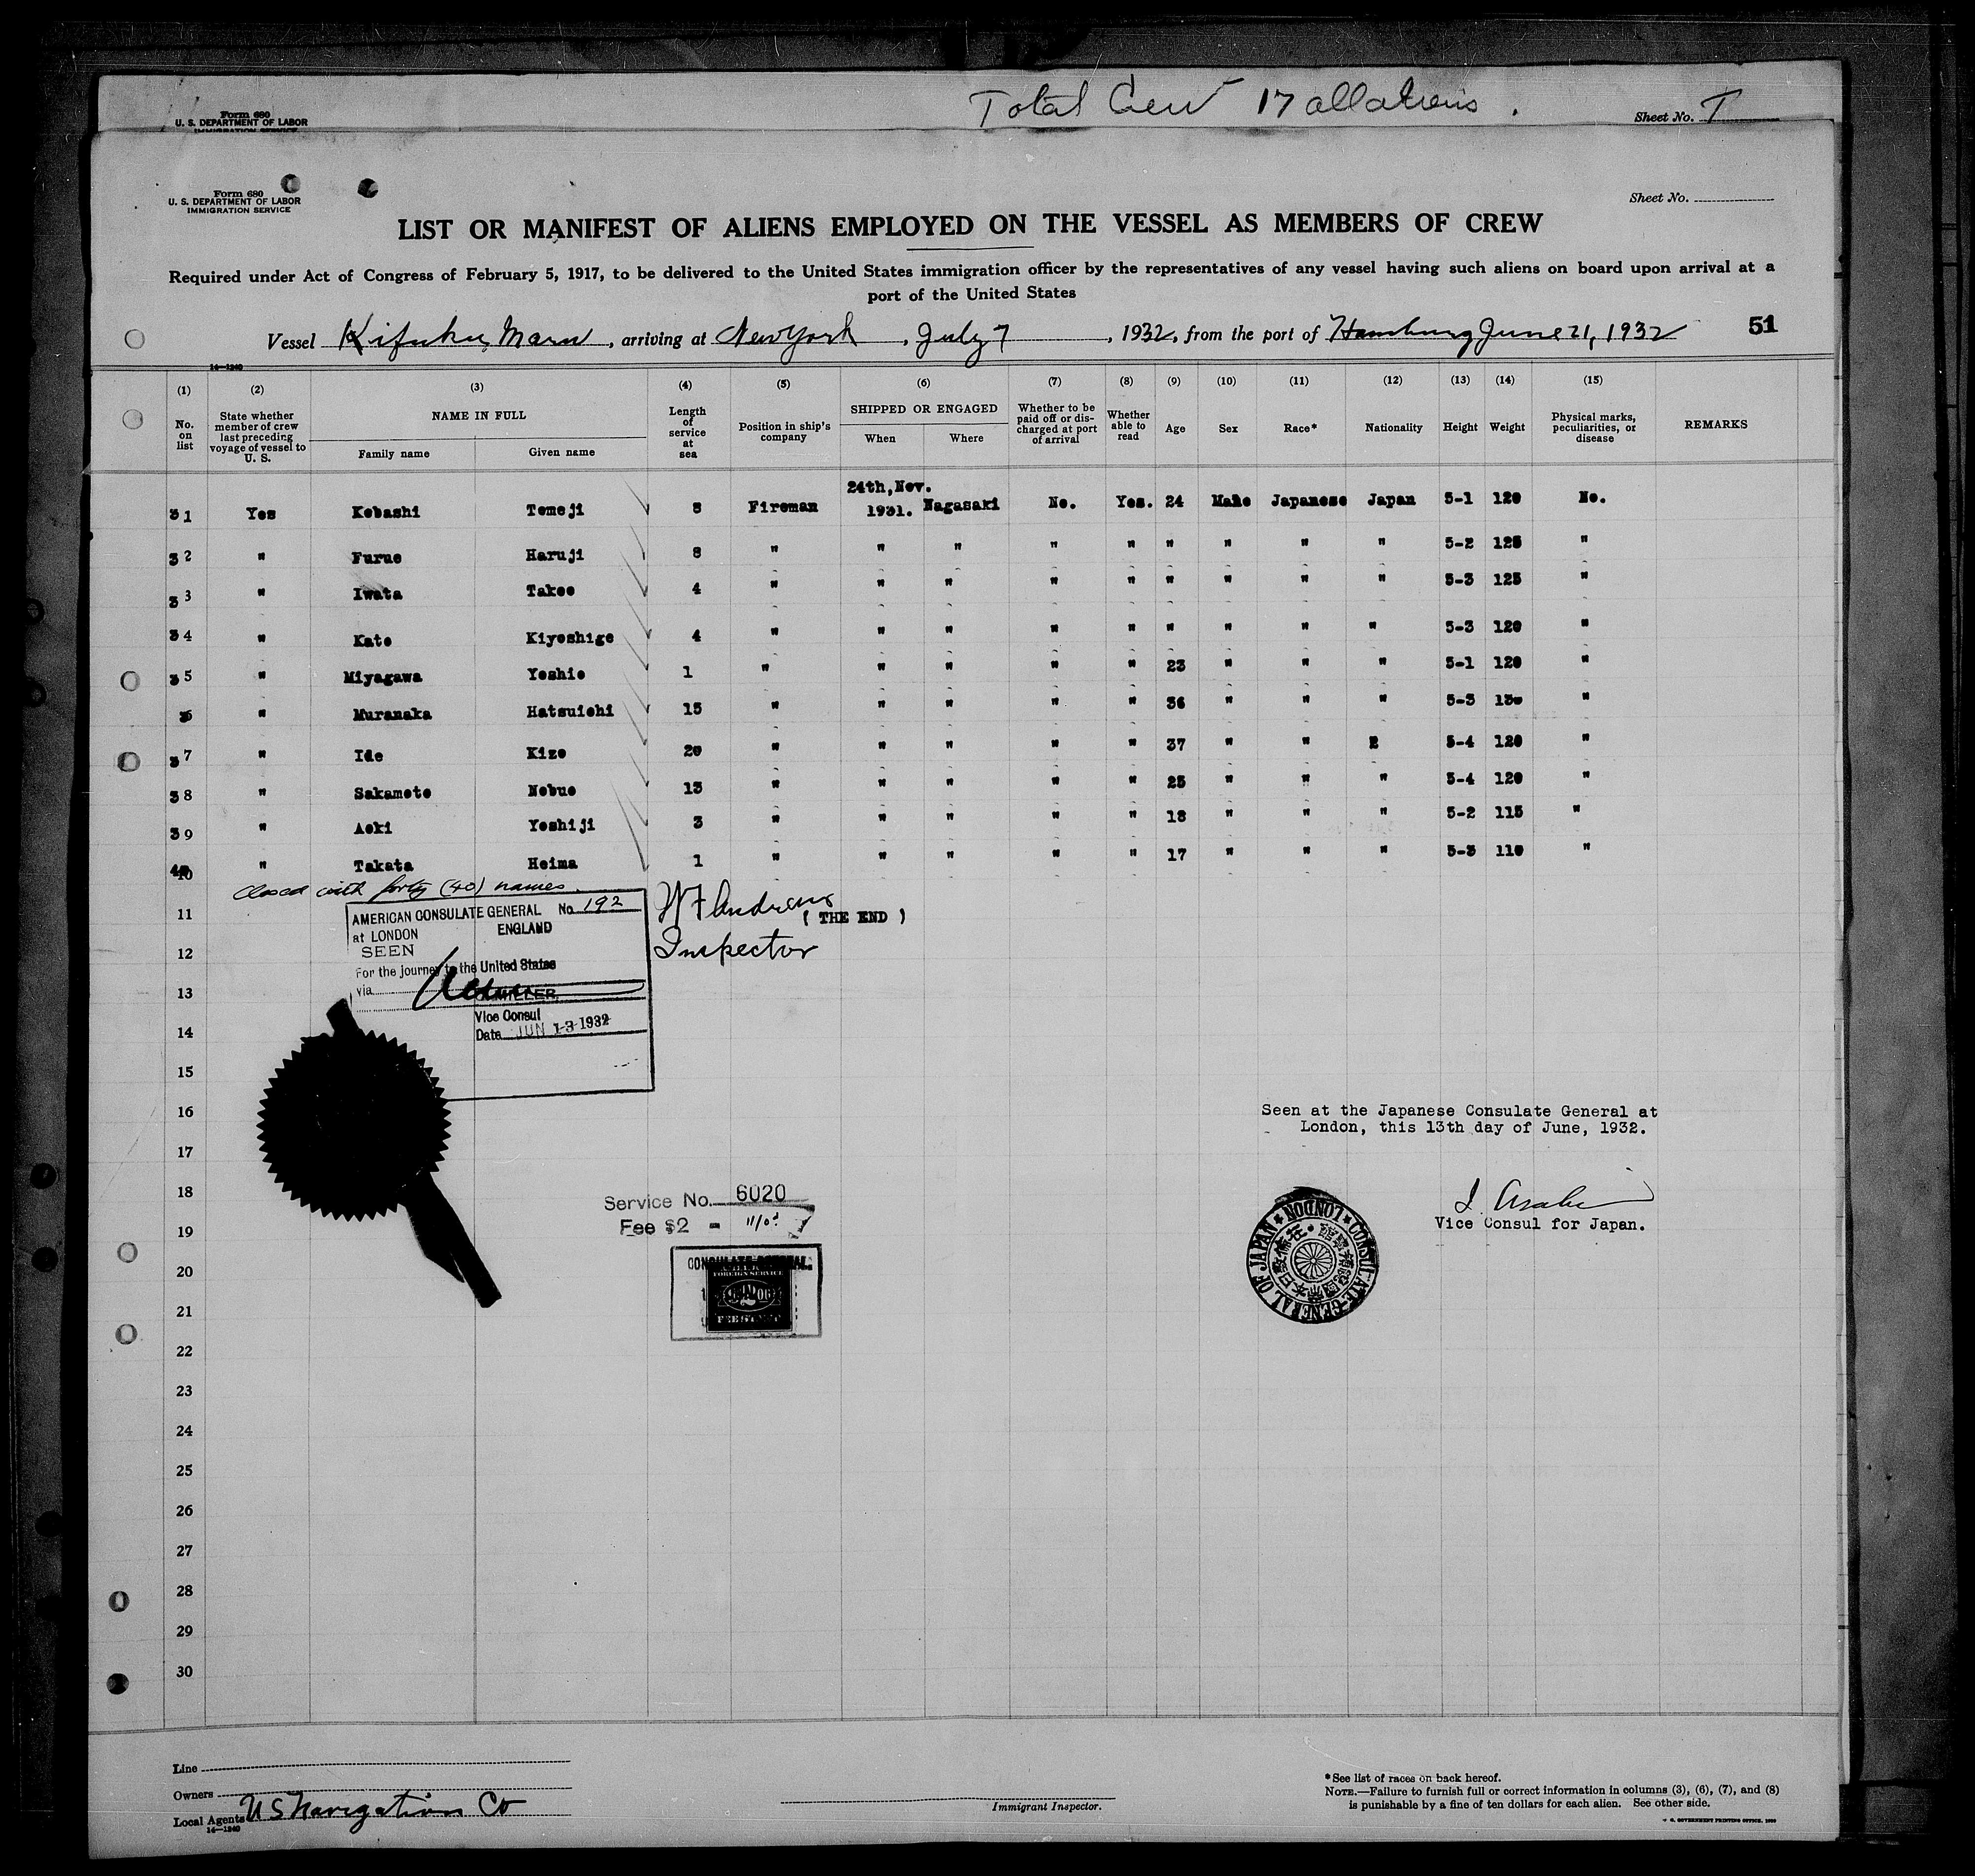 Total Crew 17 all aliens.
Form 680
U. S. DEPARTMENT OF LABOR
IMMIGRATION SERVICE
Sheet No.
Form 680
U. S. DEPARTMENT OF LABOR
IMMIGRATION SERVICE
Sheet No.
LIST OR MANIFEST OF ALIENS EMPLOYED ON THE VESSEL AS MEMBERS OF CREW
Required under Act of Congress of February 5, 1917, to be delivered to the United States immigration officer by the representatives of any vessel having such aliens on board upon arrival at a
port of the United States
Vessel Kifuku Maru, arriving at New York, July 7, 1932, from the port of Hamburg June 21, 1932 51
14—1240
(1) (2) (3) (4) (5) (6) (7) (8) (9) (10) (11) (12) (13) (14) (15)
No. on list State whether member of crew last preceding voyage of vessel to U. S. NAME IN FULL Family name Given name Length of service at sea Position in ship's company SHIPPED OR ENGAGED When Where Whether to be paid off or discharged at port of arrival Whether able to read Age Sex Race* Nationality Height Weight Physical marks, peculiarities, or disease REMARKS
31 Yes Kobashi Tomeji 8 Fireman 24th, Nov. 1931. Nagasaki No. Yes. 24 Male Japanese Japan 5-1 120 No.
32 " Furue Haruji 8 " " " " " " " " " 5-2 125 "
33 " Iwata Takeo 4 " " " " " " " " " 5-3 125 "
34 " Kato Kiyoshige 4 " " " " " " " " " 5-3 120 "
35 " Miyagawa Yoshio 1 " " " " " 23 " " " 5-1 120 "
36 " Muranaka Hatsuichi 15 " " " " " 36 " " " 5-3 130 "
37 " Ide Kizo 20 " " " " " 37 " " 5-4 120 "
38 " Sakamoto Nobuo 13 " " " " " 25 " " " 5-4 120 "
39 " Aoki Yoshiji 3 " " " " " 18 " " " 5-2 115 "
40 " Takata Heima 1 " " " " " 17 " " " 5-3 110 "
10
closed with forty (40) names.
11
W F Andrews
( THE END )
Inspector
AMERICAN CONSULATE GENERAL No. 192
at LONDON ENGLAND
SEEN
For the journey to the United States
via
MILLER
Vice Consul
Date JUN 13 1932
12
13
14
15
16
17
18
19
20
21
22
23
24
25
26
27
28
29
30
Seen at the Japanese Consulate General at
London, this 13th day of June, 1932.
Vice Consul for Japan.
CONSULATE-GENERAL OF JAPAN LONDON
Service No. 6020
Fee $2 =
CONSULATE GENERAL
FOREIGN SERVICE
FEE STAMP
Line
Owners
Local Agents U S Navigation Co
14—1240
Immigrant Inspector.
*See list of races on back hereof.
NOTE.—Failure to furnish full or correct information in columns (3), (6), (7), and (8)
is punishable by a fine of ten dollars for each alien. See other side.
GOVERNMENT PRINTING OFFICE